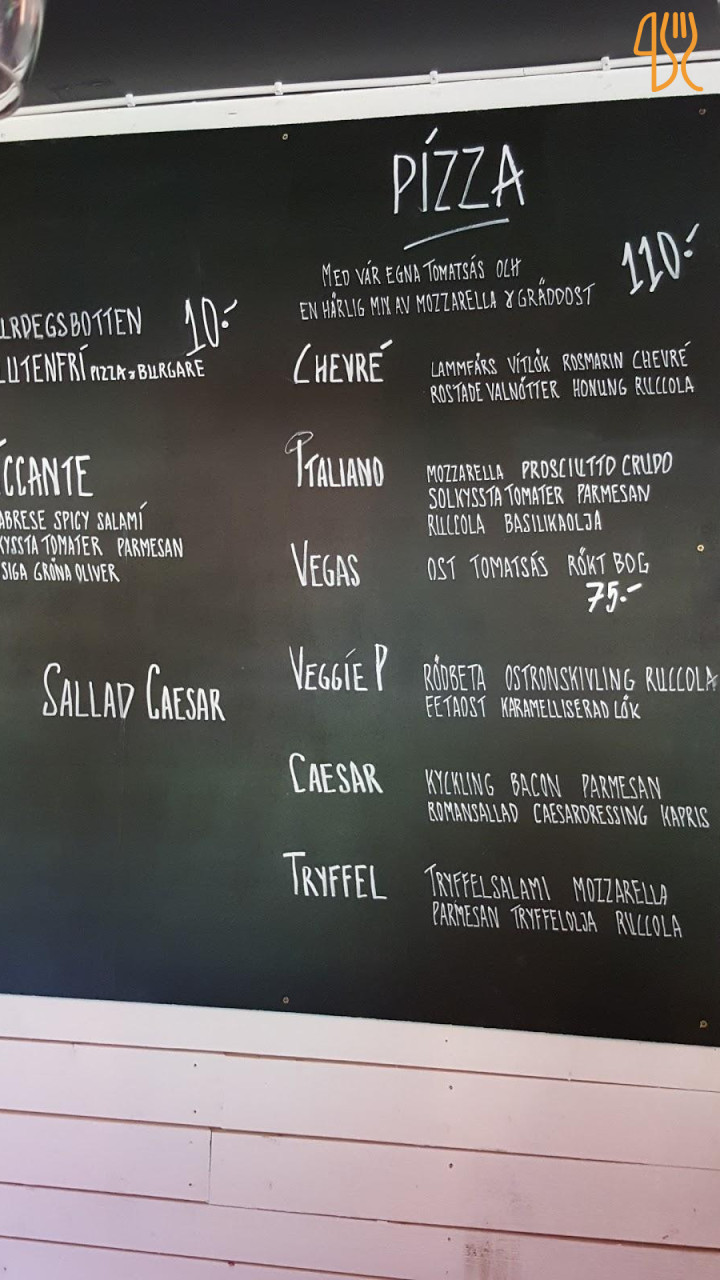 PÍZZA
MED VÅR EGNA TOMATSÅS OCH
EN HÄRLIG MIX AV MOZZARELLA & GRÄDDOST
110:-
CHEVRÉ
LAMMFÄRS VÍTLÖK ROSMARIN CHEVRÉ
ROSTADE VALNÖTTER HONUNG RUCCOLA
ITALIANO
MOZZARELLA PROSCIUTTO CRUDO
SOLKYSSTA TOMATER PARMESAN
RUCCOLA BASILIKAOLJA
VEGAS
OST TOMATSÅS RÖKT BOG
75:-
VEGGÍE P
RÖDBETA OSTRONSKIVLING RUCCOLA
FETAOST KARAMELLISERAD LÖK
CAESAR
KYCKLING BACON PARMESAN
ROMANSALLAD CAESARDRESSING KAPRIS
TRYFFEL
TRYFFELSALAMI MOZZARELLA
PARMESAN TRYFFELOLJA RUCCOLA
URDEGSBOTTEN 10:-
LUTENFRÍ PIZZA & BURGARE
ICCANTE
ABRESE SPICY SALAMÍ
KYSSTA TOMATER PARMESAN
SIGA GRÖNA OLIVER
SALLAD CAESAR